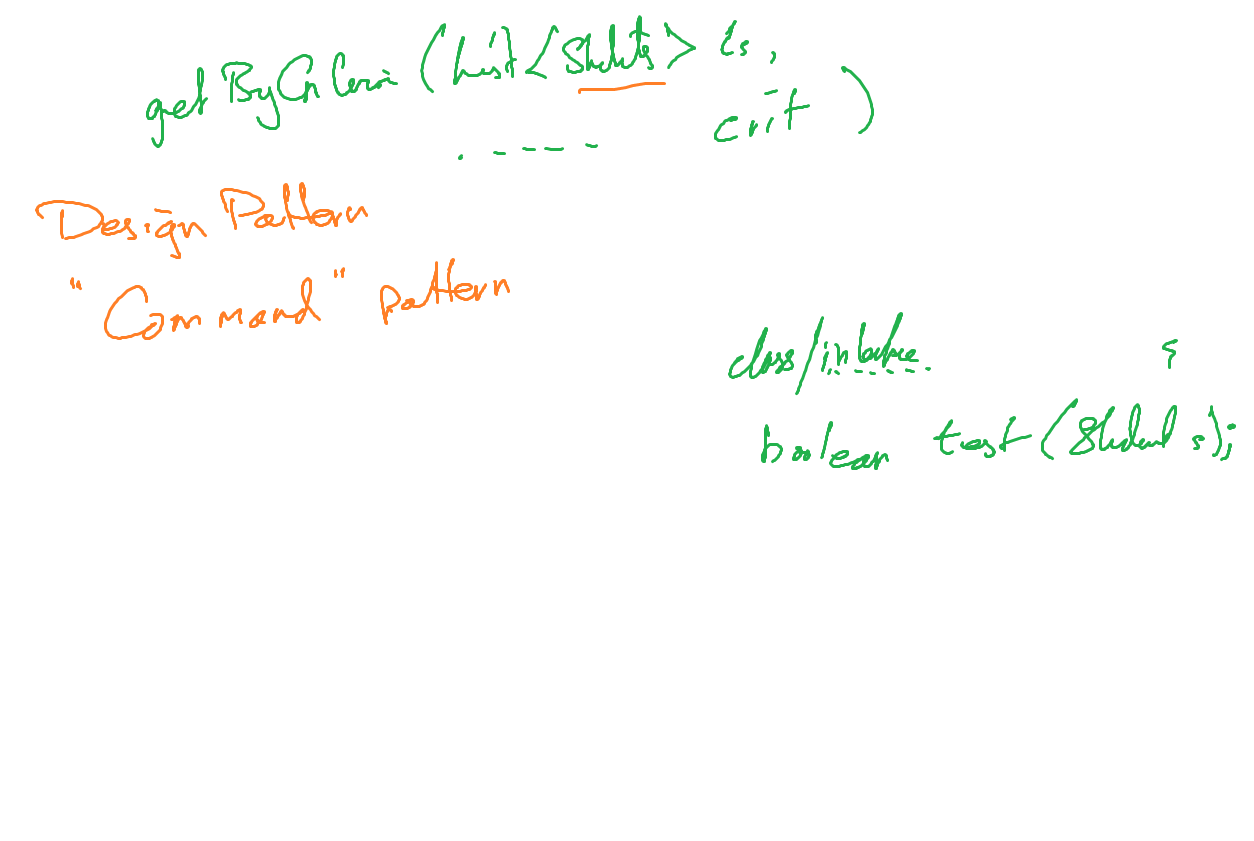 getByCriteria (List<Students> ls,
crit )
. - - - -
Design Pattern
"Command" pattern
class/interface {
boolean test(Student s);